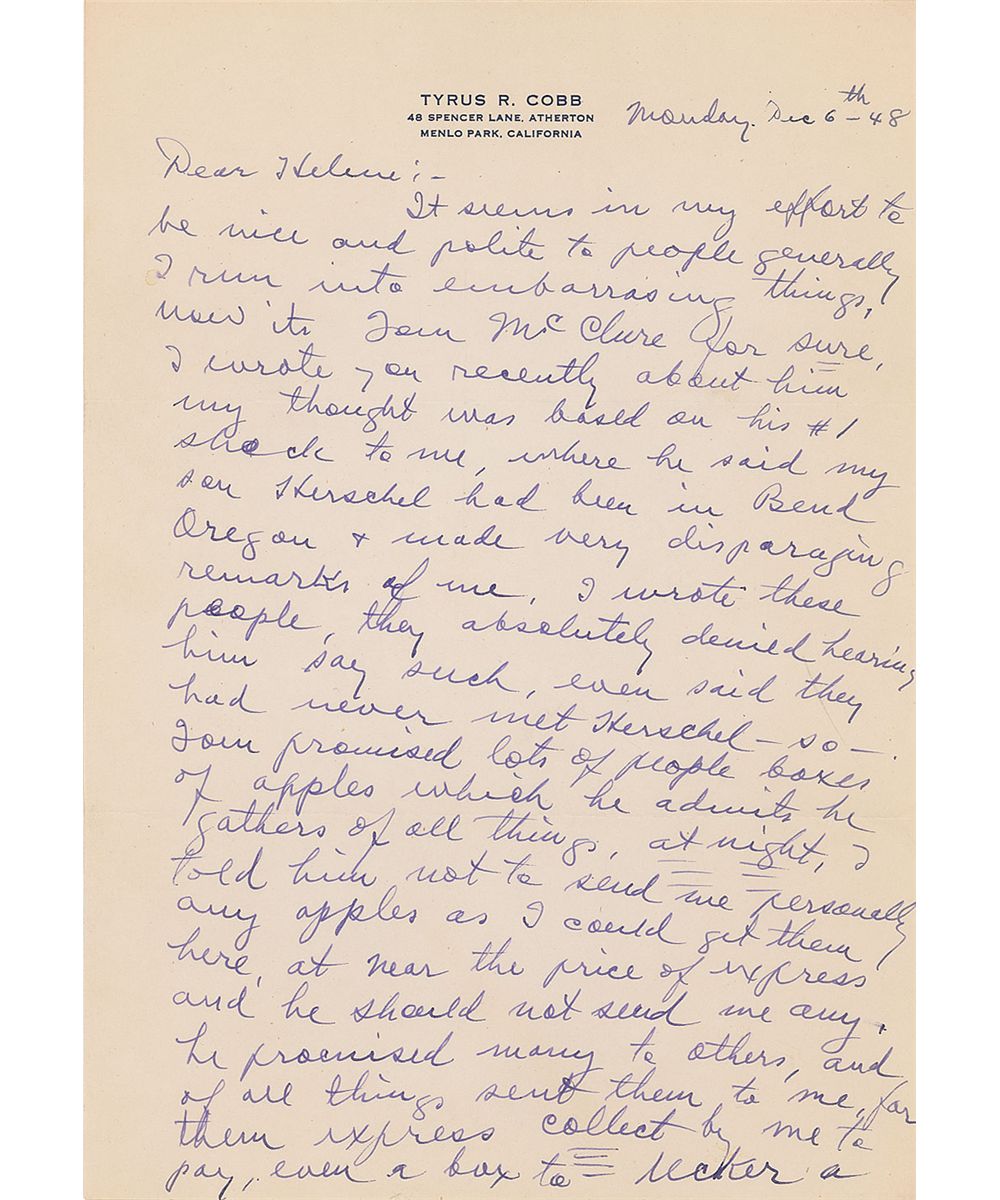 TYRUS R. COBB
48 SPENCER LANE, ATHERTON
MENLO PARK, CALIFORNIA
Monday. Dec 6th - 48
Dear Helene :-
It seems in my effort to
be nice and polite to people generally
I run into embarrasing things,
now its Tom McClure for sure,
I wrote you recently about him
my thought was based on his #1
shock to me, where he said my
son Herschel had been in Bend
Oregon & made very disparaging
remarks of me, I wrote these
people, they absolutely denied hearing
him say such, even said they
had never met Herschel - so -
Tom promised lots of people boxes
of apples which he admits he
gathers of all things, at night, I
told him not to send me personally
any apples as I could get them
here, at near the price of express
and he should not send me any.
he promised many to others, and
of all things sent them to me, for
them express collect by me to
pay, even a box to Ucker a